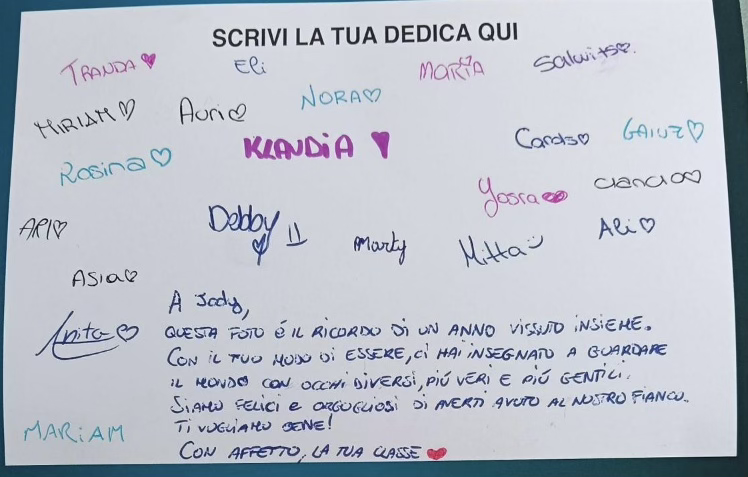 SCRIVI LA TUA DEDICA QUI
TRANDA♥ Eli MARIA
MIRIAM♡ Auri♡ NORA♡
KLANDIA ♥ GAIUZ♡
Rosina♡ Yosra♥ ciancio♡
API♡ Debby Marty Mitta Ali♡
ASIA♡
Anita♡
MARIAM
A Jody,
QUESTA FOTO É IL RICORDO DI UN ANNO VISSUTO INSIEME.
CON IL TUO MODO DI ESSERE, CI HAI INSEGNATO A GUARDARE
IL MONDO CON OCCHI DIVERSI, PIÚ VERI E PIÚ GENTILI.
SIAMO FELICI E ORGOGLIOSI DI AVERTI AVUTO AL NOSTRO FIANCO.
TI VOGLIAMO BENE!
CON AFFETTO, LA TUA CLASSE ♥